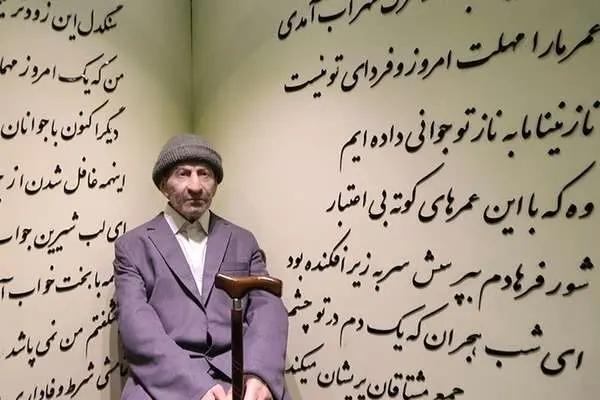 سهراب آمدی
عمر ما را مهلت امروز و فردای تو نیست
نازنینا ما به ناز تو جوانی داده ایم
وه که با این عمرهای کوته بی اعتبار
شور فرهادم بپرسش سر به زیر افکنده بود
ای شب هجران که یک دم در تو چشم
جمع مشتاقان پریشان میکند
سنگدل این زودتر
من که یک امروز
دیگر اکنون با جوانان
اینهمه غافل شدن از
ای لب شیرین جواب
با بخت خواب
من نمی پاشد
شرط وفاداری